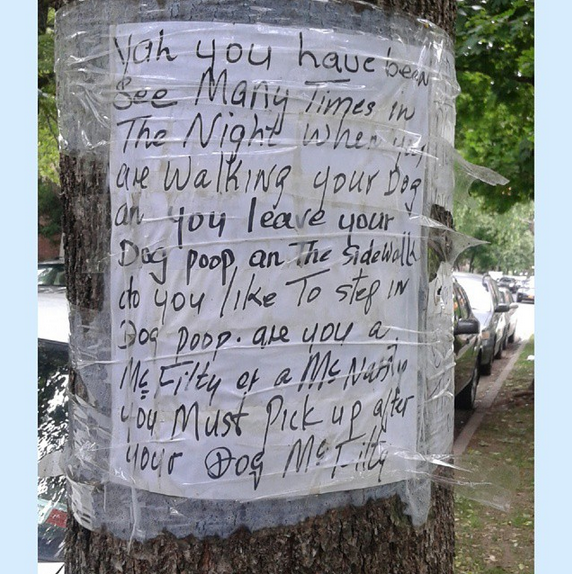 Yah you have been
See Many Times in
The Night when you
are walking your Dog
an you leave your
Dog poop an The Sidewalk
do you like To step in
Dog poop. are you a
Mc Filty or a Mc Nasty
you Must Pick up after
your Dog Mc Filty